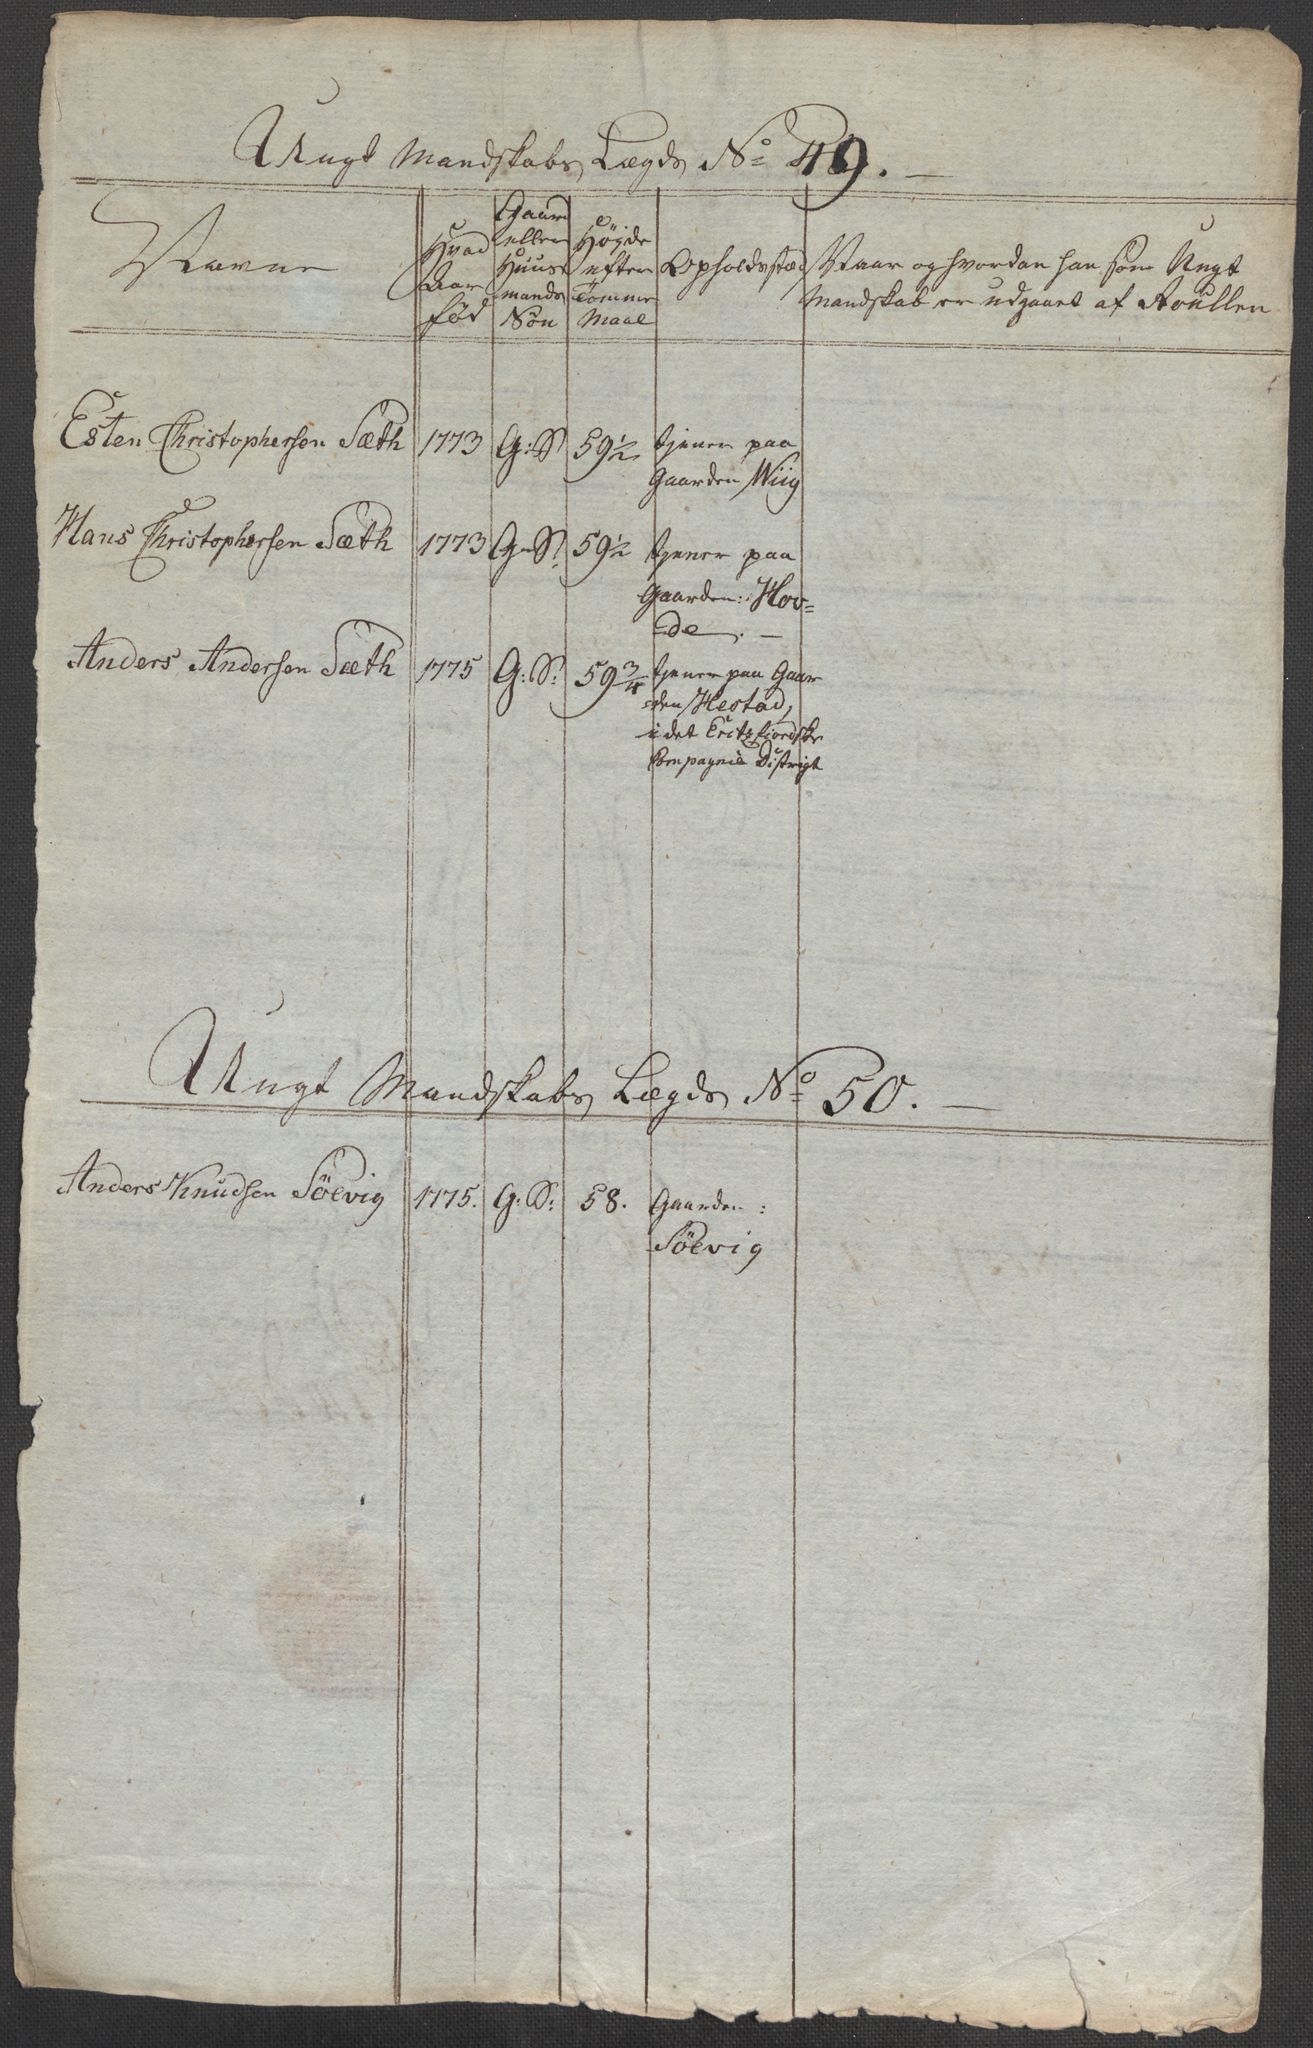 Ungt Mandskabs Lægds No 49. —
Navne
Hvad Aar fød
Gaard eller Huusmands Søn
Højde efter Tomme Maal
Opholdssted
Naar og hvordan han som Ungt
Mandskab er udgaaet af Roullen
Esten Christophersen Sæth 1773 G: S: 59½ tjener paa
Gaarden Wiig
Hans Christophersen Sæth 1773 G: S: 59½ tjener paa
Gaarden: Hov=
=de. —
Anders Andersen Sæth 1775 G: S: 59¾ tjener paa Gaar
=den Hestad,
i det Eritzfiordske
Compagnie Distrigt
Ungt Mandskabs Lægds No 50. —
Anders Knudsen Söevig 1775. G: S: 58. Gaarden:
Söevig